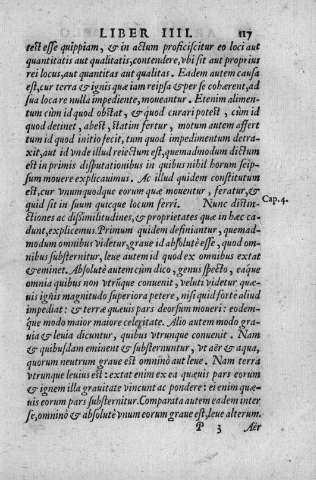 LIBER IIII. 117
test esse quippiam, & in actum proficiscitur eo loci aut
quantitatis aut qualitatis, contendere, vbi sit aut proprius
rei locus, aut quantitas aut qualitas. Eadem autem causa
est, cur terra & ignis quæ iam reipsa & per se cohærent, ad
sua loca re nulla impediente, moueantur. Etenim alimen-
tum cùm id quod obstat, & quod curari potest, cùm id
quod detinet, abest, statim fertur, motum autem affert
tum id quod initio fecit, tum quod impedimentum detra-
xit, aut id vnde illud reiectum est, quemadmodum dictum
est in primis disputationibus in quibus nihil horum seip-
sum mouere explicauimus. Ac illud quidem constitutum
est, cur vnumquodque eorum quæ mouentur, feratur, &
quid sit in suum quicque locum ferri. Nunc distin-
Cap. 4.
ctiones ac dissimilitudines, & proprietates quæ in hæc ca-
dunt, explicemus. Primum quidem definiantur, quemad-
modum omnibus videtur, graue id absolutè esse, quod om-
nibus substernitur, leue autem id quod ex omnibus extat
& eminet. Absolutè autem cùm dico, genus specto, eaque
omnia quibus non vtrunque conuenit, veluti videtur quæ-
uis ignis magnitudo superiora petere, nisi quid fortè aliud
impediat: & terræ quæuis pars deorsum moueri: eodem-
que modo maior maiore celeritate. Alio autem modo gra-
uia & leuia dicuntur, quibus vtrunque conuenit. Nam
& quibusdam eminent & substernuntur, vt aër & aqua,
quorum neutrum graue est omnino aut leue. Nam terra
vtrunque leuius est: extat enim ex ea quæuis pars eorum
& ignem illa grauitate vincunt ac pondere: ei enim quæ-
uis eorum pars substernitur. Comparata autem eadem inter
se, omninò & absolutè vnum eorum graue est, leue alterum.
P 3 Aër